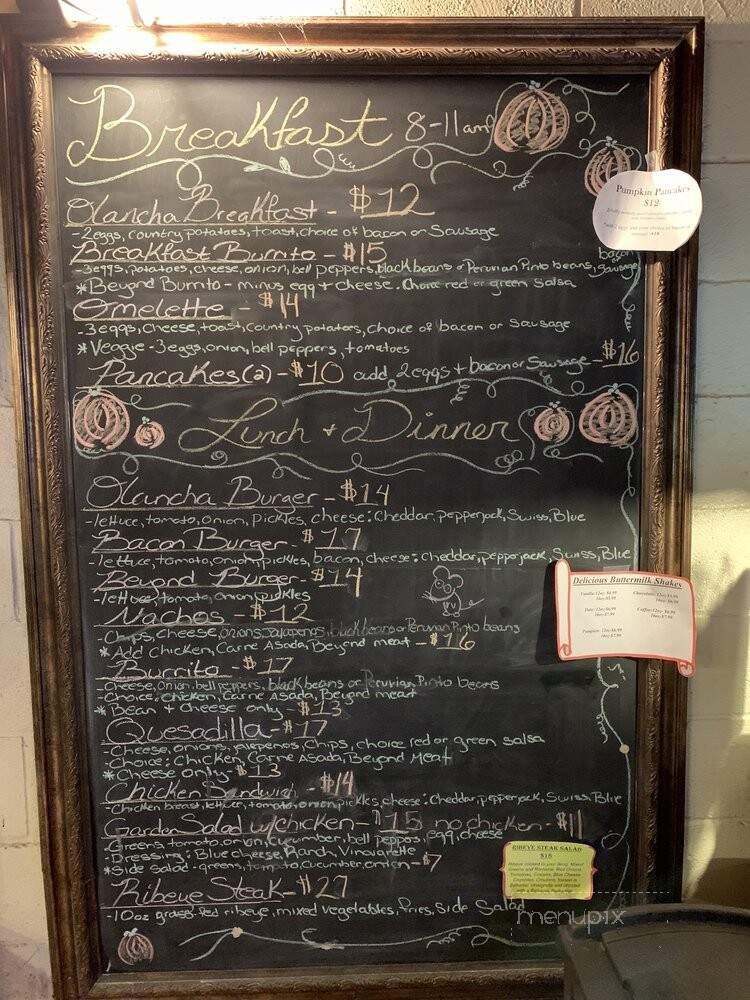 Breakfast 8-11am
Olancha Breakfast - $12
-2eggs, country potatoes, toast, choice of bacon or Sausage
Breakfast Burrito - $15
-3eggs, potatoes, cheese, onion, bell peppers, black beans or Peruvian Pinto beans, bacon sausage
*Beyond Burrito - minus egg + cheese. Choice red or green Salsa
Omelette - $14
-3eggs, Cheese, toast, country potatoes, choice of bacon or sausage
*Veggie -3eggs, onion, bell peppers, tomatoes
Pancakes (2) - $10 add 2eggs + bacon or Sausage - $16
Pumpkin Pancakes
$12
Lunch + Dinner
Olancha Burger - $14
-lettuce, tomato, onion, pickles, cheese: Cheddar, pepperjack, Swiss, Blue
Bacon Burger - $17
-lettuce, tomato, onion, pickles, bacon, cheese: Cheddar, pepperjack, Swiss, Blue
Beyond Burger - $14
-lettuce, tomato, onion, pickles
Nachos - $12
-Chips, cheese, onions, Jalapenos, black beans or Peruvian Pinto beans
*Add Chicken, Carne Asada, Beyond meat - $16
Burrito - $17
-Cheese, onion, bell peppers, black beans or Peruvian Pinto beans
-Choice: Chicken, Carne Asada, Beyond meat
*Bean + Cheese only - $13
Quesadilla - $17
-Cheese, onions, jalepenos, Chips, choice red or green salsa
-Choice: Chicken, Carne Asada, Beyond Meat
*Cheese only $13
Chicken Sandwich - $14
-Chicken breast, lettuce, tomato, onion, pickles, cheese: Cheddar, pepperjack, Swiss, Blue
Garden Salad w/chicken - $15 no chicken - $11
-Greens, tomato, onion, cucumber, bell peppers, egg, cheese
-Dressing: Blue cheese, Ranch, Vinaigrette
*Side salad - greens, tomato, cucumber, onion - $7
Ribeye Steak - $27
-10oz grass fed ribeye, mixed vegetables, fries, Side Salad
Delicious Buttermilk Shakes
RIBEYE STEAK SALAD
menupix